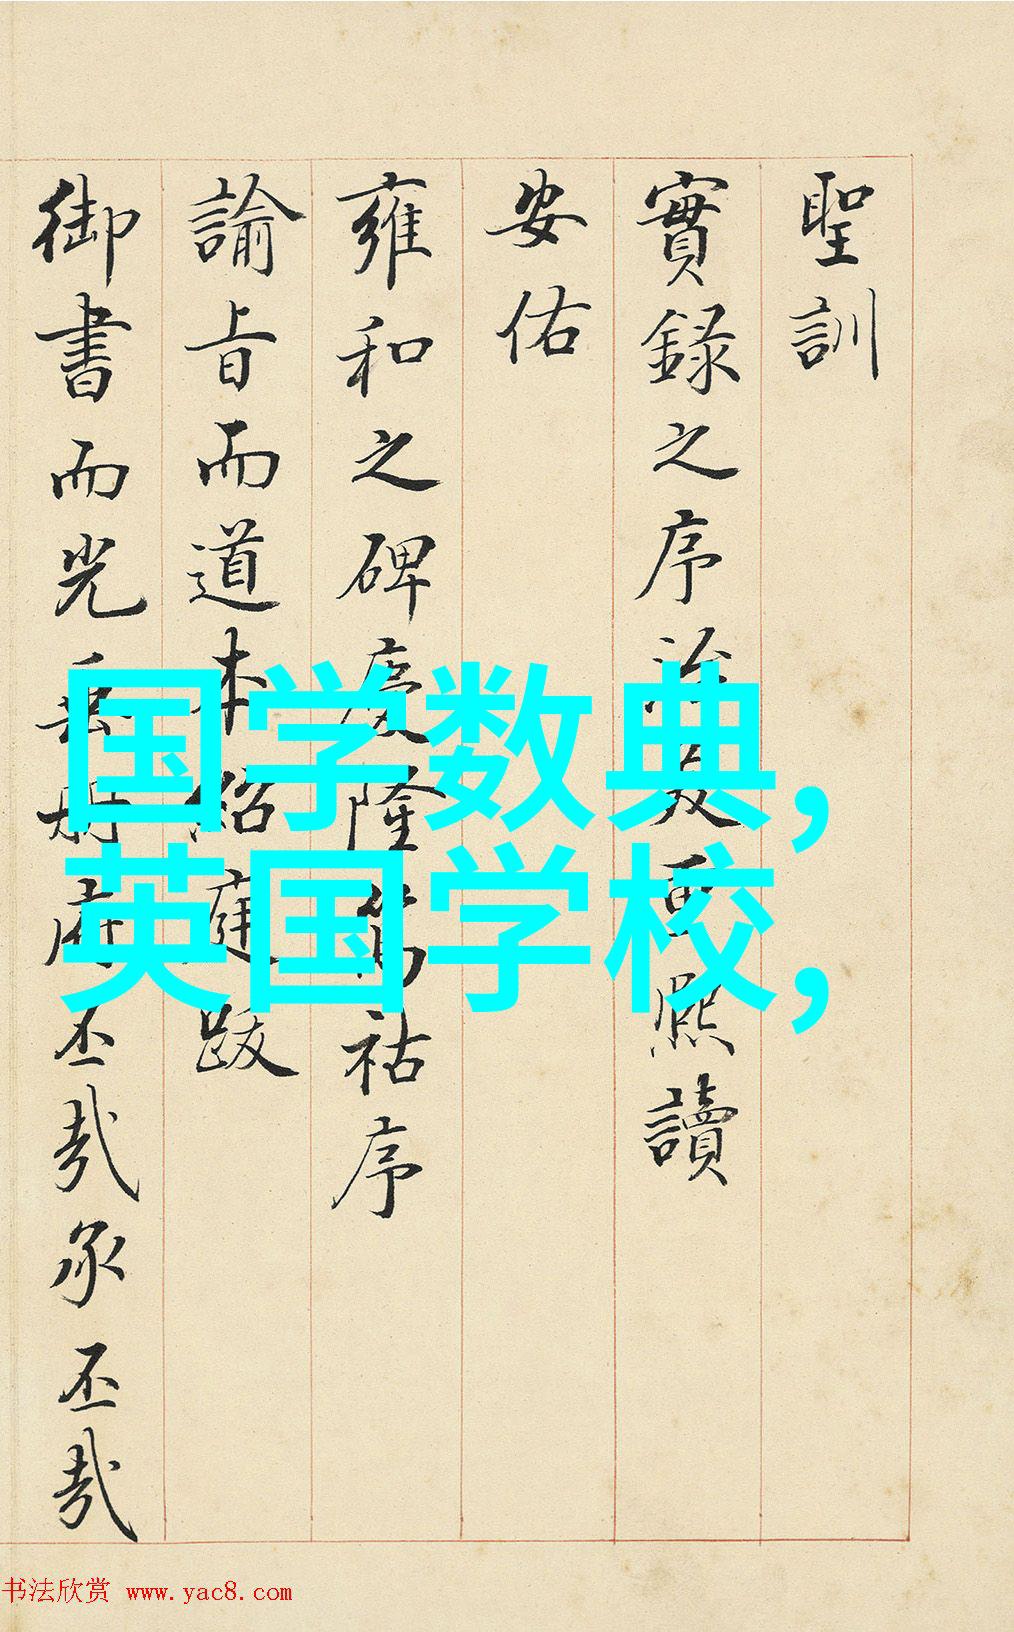 聖訓
實録之序治熙讀
安佑
雍和之碑慶隆篤祜序
諭旨而道本紹庭跋
御書而光岳册府丕哉承丕哉
国学数典,
英国学校,
书法欣赏 www.yac8.com